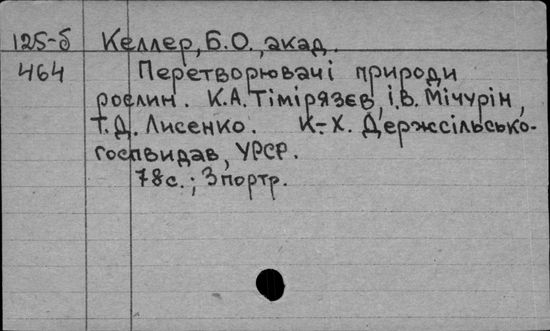 125-б Келлер, Б.О., акад.
464 Перетворювачі природи
рослин. К.А. Тімірязєв, І.В. Мічурін,
Т.Д. Лисенко. К.-Х. Держсільсько-
госпвидав, УРСР.
78с.; 3 портр.